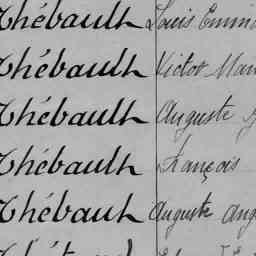 Thébault Louis Emm
Thébault Victor Mar
Thébault Auguste
Thébault François
Thébault Auguste Aug